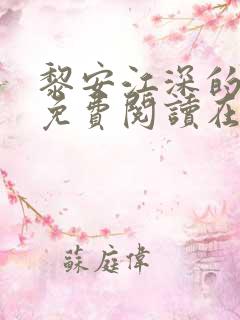 黎安江深的
免費閱讀在
蘇庭偉